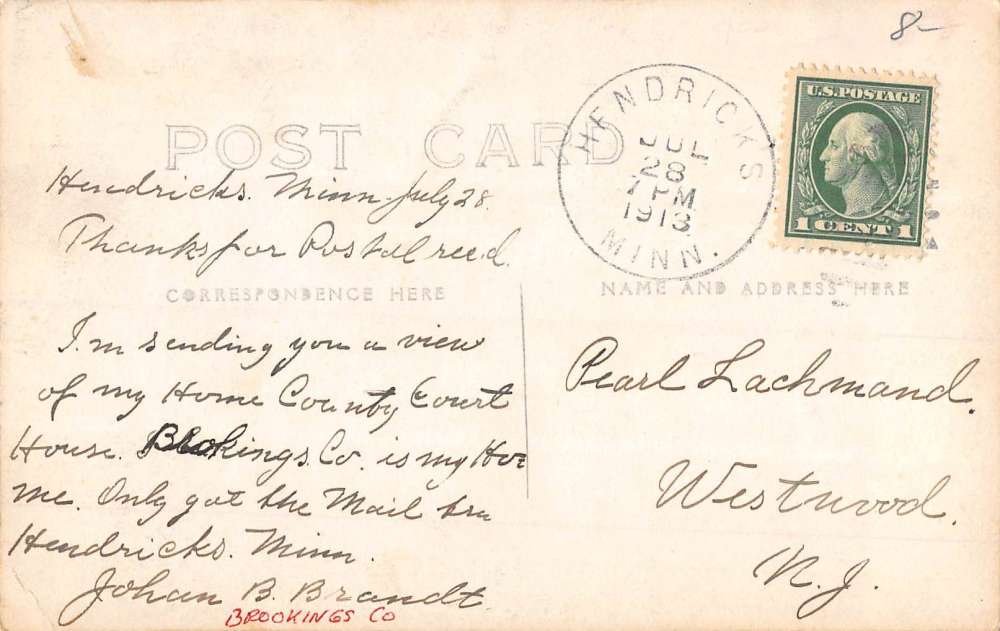 8-
U.S. POSTAGE
1 CENT 1
HENDRICKS
JUL
28
7 PM
1913
MINN.
POST CARD
Hendricks. Minn. July 28.
Thanks for Postal rec.d.
CORRESPONDENCE HERE
I.m sending you a view
of my Home County Court
House. Brokings. Co. is my Ho=
me. Only got the Mail tru
Hendricks. Minn.
Johan B. Brandt
BROOKINGS CO
NAME AND ADDRESS HERE
Pearl Lachmand.
Westwood.
N. J.